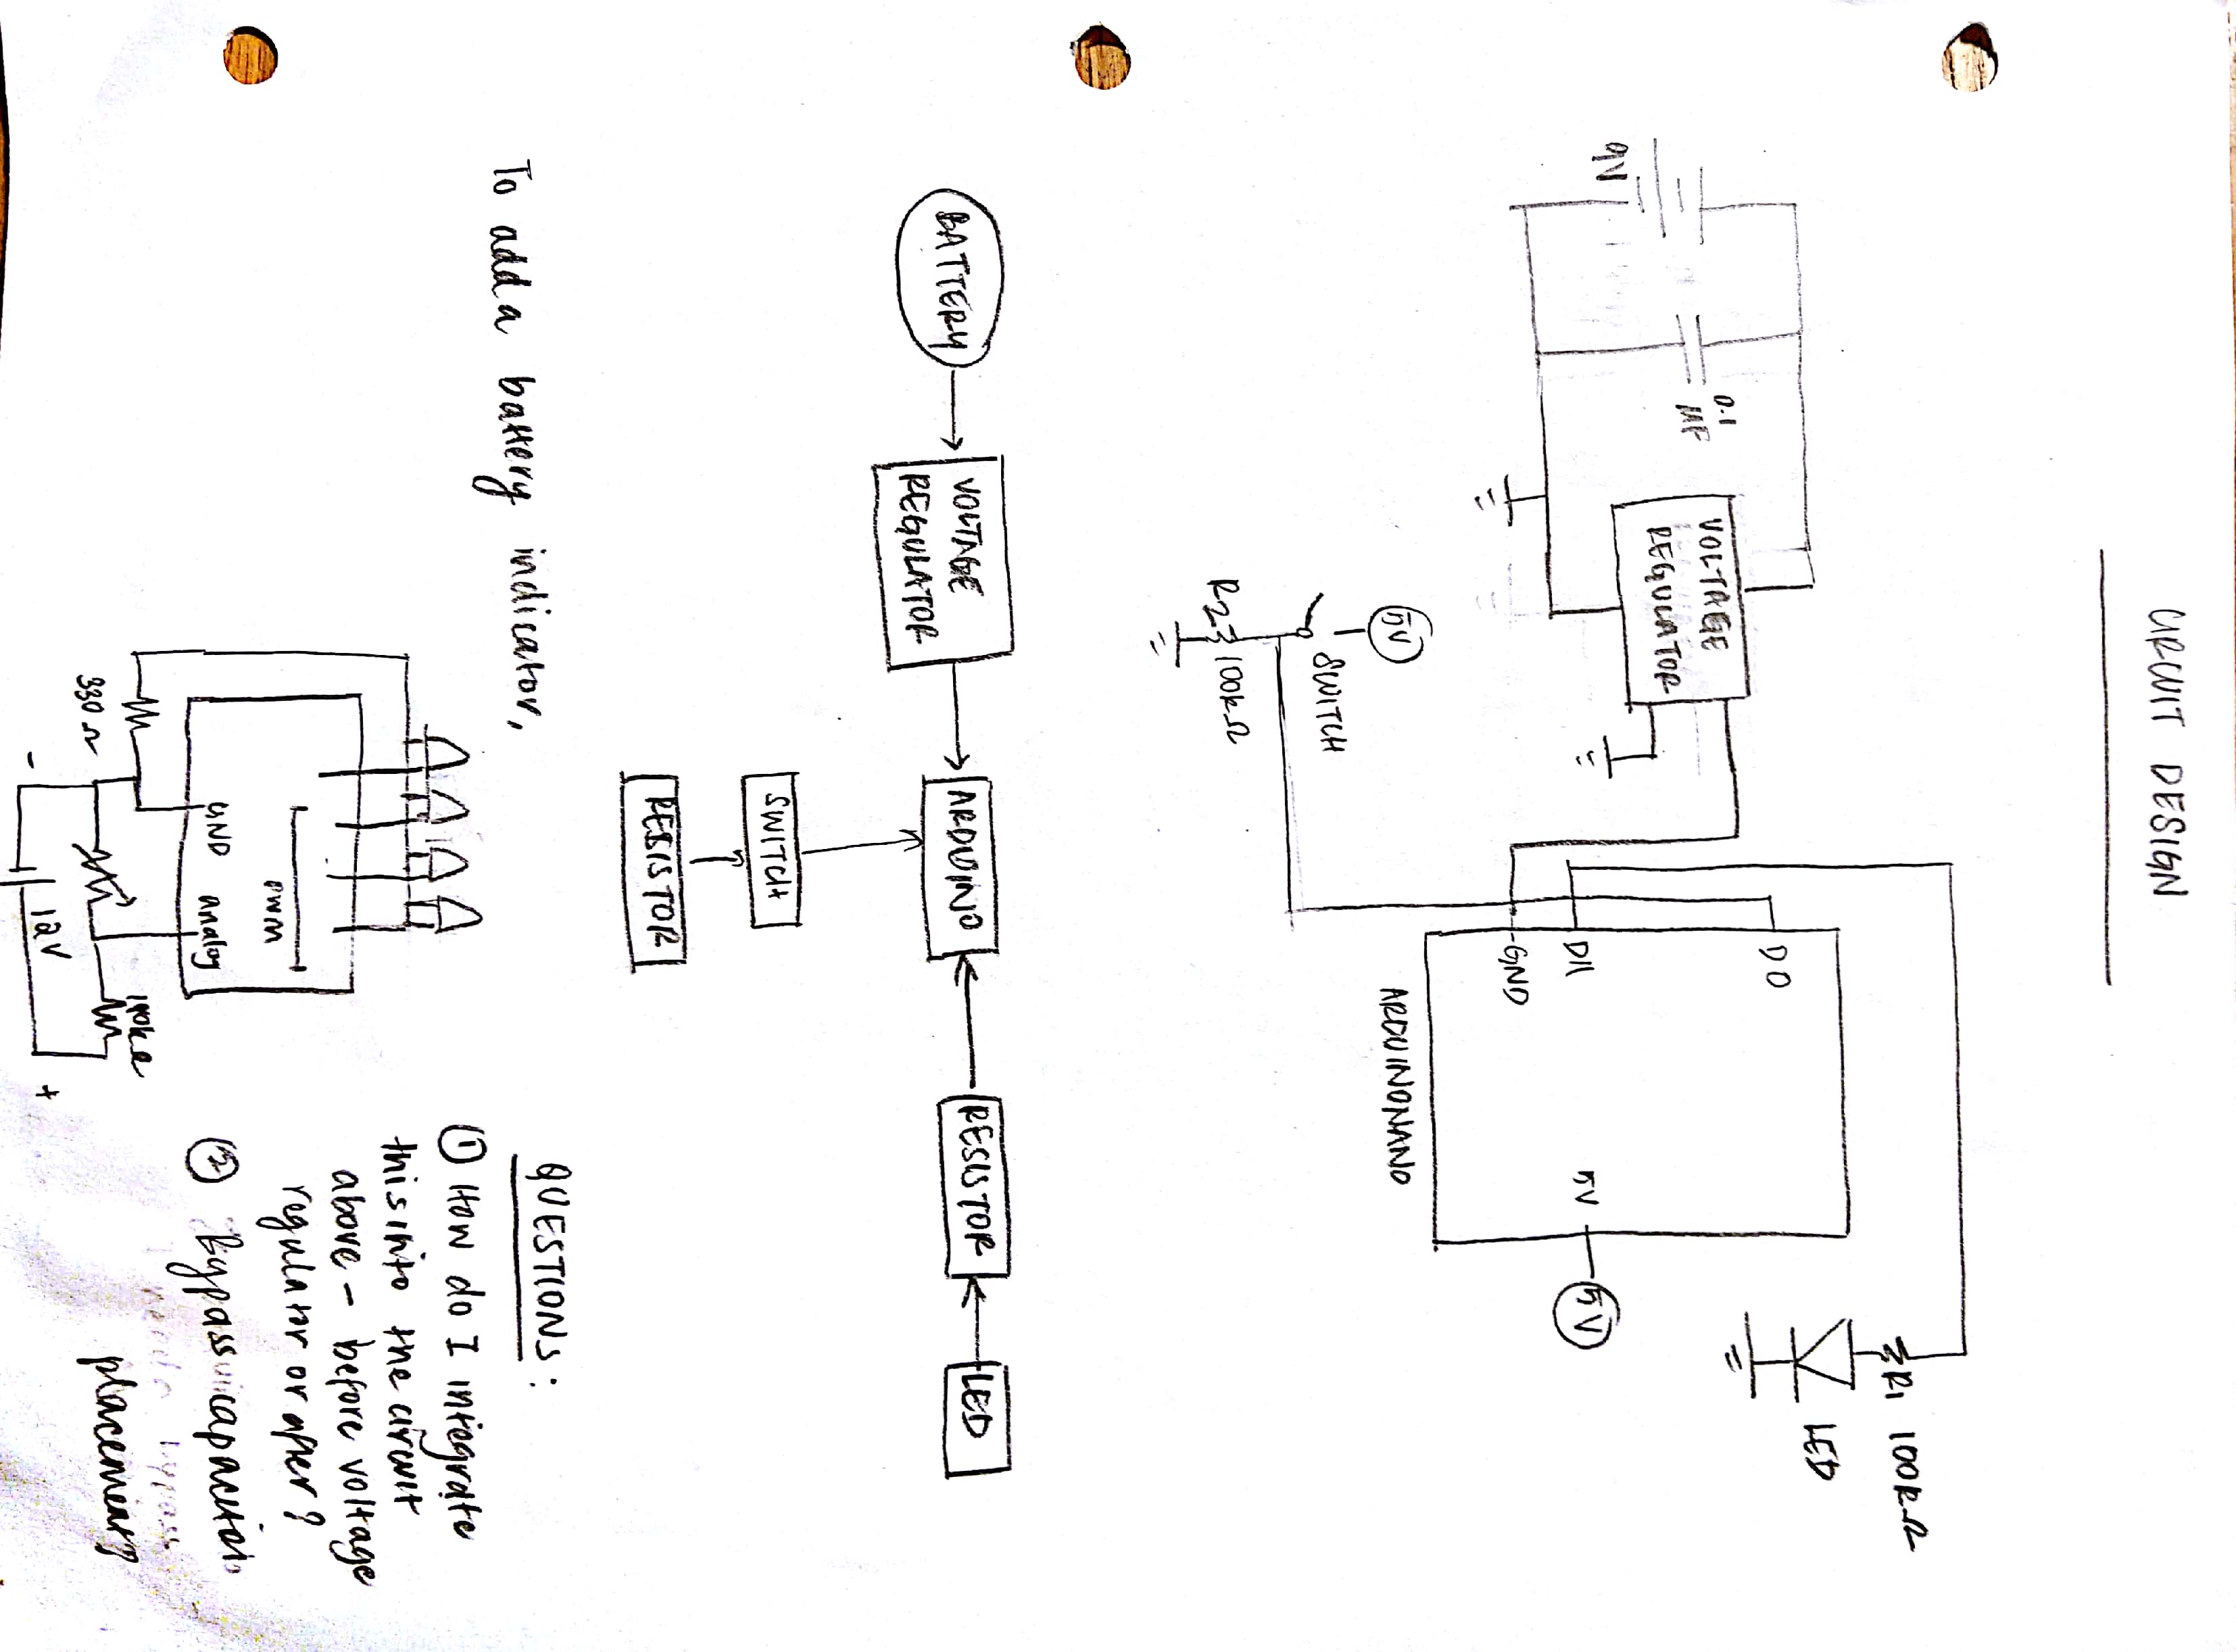 CIRCUIT DESIGN
9V
0.1
MF
VOLTAGE
REGULATOR
5V
SWITCH
R2
100kΩ
D0
D11
GND
5V
5V
ARDUINONANO
R1 100kΩ
LED
BATTERY
VOLTAGE
REGULATOR
ARDUINO
RESISTOR
LED
SWITCH
RESISTOR
To add a battery indicator,
PWM
GND analog
330Ω
100kΩ
-
12V
+
QUESTIONS:
① How do I integrate
this into the circuit
above - before voltage
regulator or after?
② Bypass capacitor
placement?